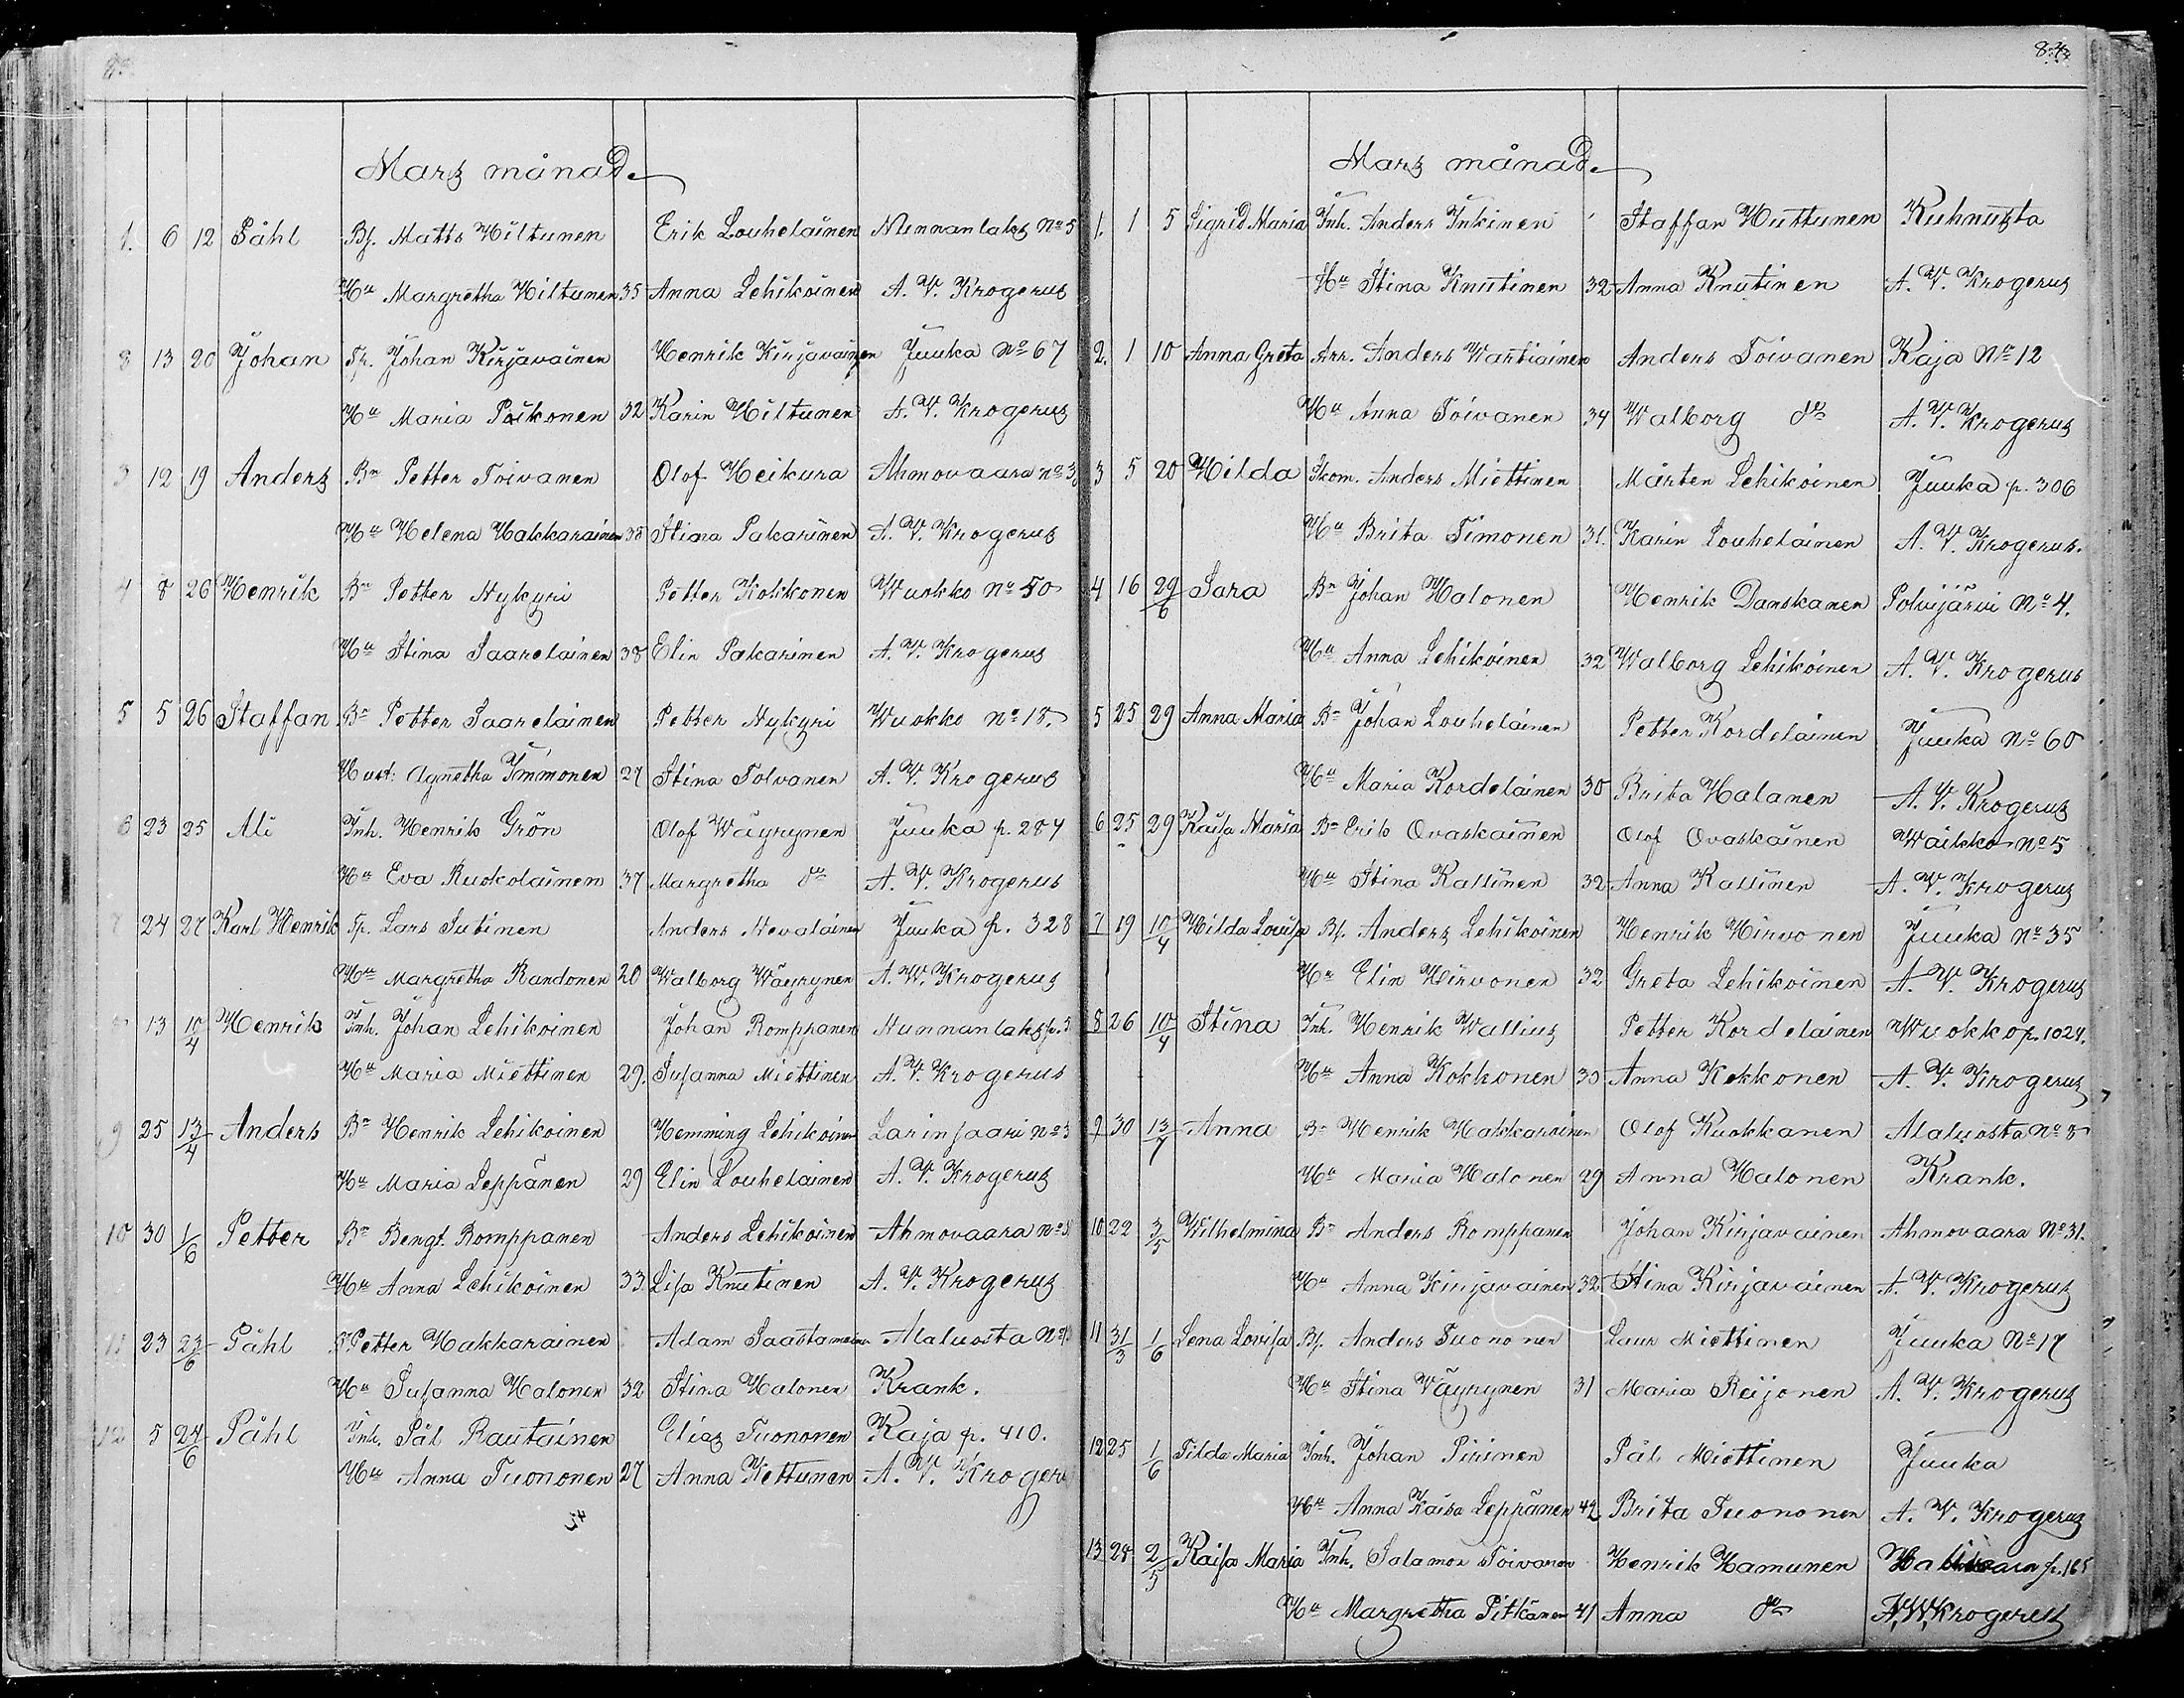 84.
Mars månad.
1. 6 12 Påhl Bs. Matts Hiltunen Erik Louhelainen Nunnanlaks No 5
Hu Margretha Hiltunen 35 Anna Lehikoinen A. V. Krogerus
13 20 Johan Tp. Johan Kirjavainen Henrik Kirjavainen Juuka No 67
Hu Maria Poikonen 32 Karin Hiltunen A. V. Krogerus
3 12 19 Anders Bn Petter Toivanen Olof Heikura Ahmovaara No 3
Hu Helena Hakkarainen 38 Stina Pakarinen A. V. Krogerus
4 8 26 Henrik Bn Petter Nykyri Petter Kokkonen Wuokko No 50
Hu Stina Saarelainen 38 Elin Pakarinen A. V. Krogerus
5 5 26 Staffan Bn Petter Saarelainen Petter Nykyri Wuokko No 18.
Hust: Agnetha Immonen 27 Stina Tolvanen A. V. Krogerus
6 23 25 Ali Inh. Henrik Grön Olof Wäyrynen Juuka p. 284
Hu Eva Ruokolainen 37 Margretha do A. V. Krogerus
24 27 Karl Henrik Tp. Lars Sutinen Anders Nevalainen Juuka p. 328
Hu Margretha Randonen 20 Walborg Wäyrynen A. W. Krogerus
13 10/4 Henrik Inh. Johan Lehikoinen Johan Romppanen Nunnanlaks p. 5
Hu Maria Miettinen 29. Susanna Miettinen A. V. Krogerus
9 25 13/4 Anders Bn Henrik Lehikoinen Hemming Lehikoinen Larinsaari No 3
Hu Maria Leppänen 29 Elin Louhelainen A. V. Krogerus
10 30 1/6 Petter Bn Bengt. Romppanen Anders Lehikoinen Ahmovaara No 8
Hu Anna Lehikoinen 33. Lisa Knutinen A. V. Krogerus
11 23 23/6 Påhl Bn Petter Hakkarainen Adam Saastamoinen Alaluosta No
Hu Susanna Halonen 32 Stina Halonen Krank.
12 5 24/6 Påhl Inh. Pål Rautainen Elias Tuononen Kaja p. 410.
Hu Anna Tuononen 27 Anna Hettunen A. V. Krogerus
Mars månad.
1. 1 5 Sigrid Maria Inh. Anders Inkinen Staffan Huttunen Kuhnusta
Hu Stina Knutinen 32 Anna Knutinen A. V. Krogerus
2. 1 10 Anna Greta Arr. Anders Wartiainen Anders Toivanen Kaja No 12
Hu Anna Toivanen 34 Walborg do A. V. Krogerus
3 5 20 Hilda Skom. Anders Miettinen Mårten Lehikoinen Juuka p. 306
Hu Brita Timonen 31. Karin Louhelainen A. V. Krogerus.
4 16 29/6 Sara Bn Johan Halonen Henrik Danskanen Polvijärvi No 4.
Hu Anna Lehikoinen 32 Walborg Lehikoinen A. V. Krogerus
5 25 29 Anna Maria Bn Johan Louhelainen Petter Kordelainen Juuka No 60
Hu Maria Kordelainen 30 Brita Halanen A. V. Krogerus
6 25 29 Kaisa Maria Bn Erik Ovaskainen Olof Ovaskainen Waikko No 5
Hu Stina Kallinen 32 Anna Kallinen A. V. Krogerus
7 19 10/4 Hilda Lovisa Bs. Anders Lehikoinen Henrik Hirvonen Juuka No 35
Hu Elin Hirvonen 32 Greta Lehikoinen A. V. Krogerus
8 26 10/4 Stina Inh. Henrik Wallius Petter Kordelainen Wuokko p. 1024.
Hu Anna Kokkonen 30 Anna Kokkonen A. V. Krogerus
9 30 13/7 Anna Bn Henrik Hakkarainen Olof Kuokkanen Alaluosta No 8
Hu Maria Halonen 29 Anna Halonen Krank.
10 22 3/5 Wilhelmina Bn Anders Romppanen Johan Kirjavainen Ahmovaara No 31.
Hu Anna Kirjavainen 32 Stina Kirjavainen A. V. Krogerus
11 31/3 1/6 Lena Lovisa Bs. Anders Tuononen Laur Miettinen Juuka No 17
Hu Stina Väyrynen 31 Maria Reijonen A. V. Krogerus
12 25 1/6 Tilda Maria Inh. Johan Piirinen Pål Miettinen Juuka
Hu Anna Kaisa Leppänen 42 Brita Tuononen A. V. Krogerus
13 28 2/5 Kaisa Maria Inh. Salamon Toivanen Henrik Hamunen p. 165
Hu Margretha Pitkänen 41 Anna do A. W. Krogerus